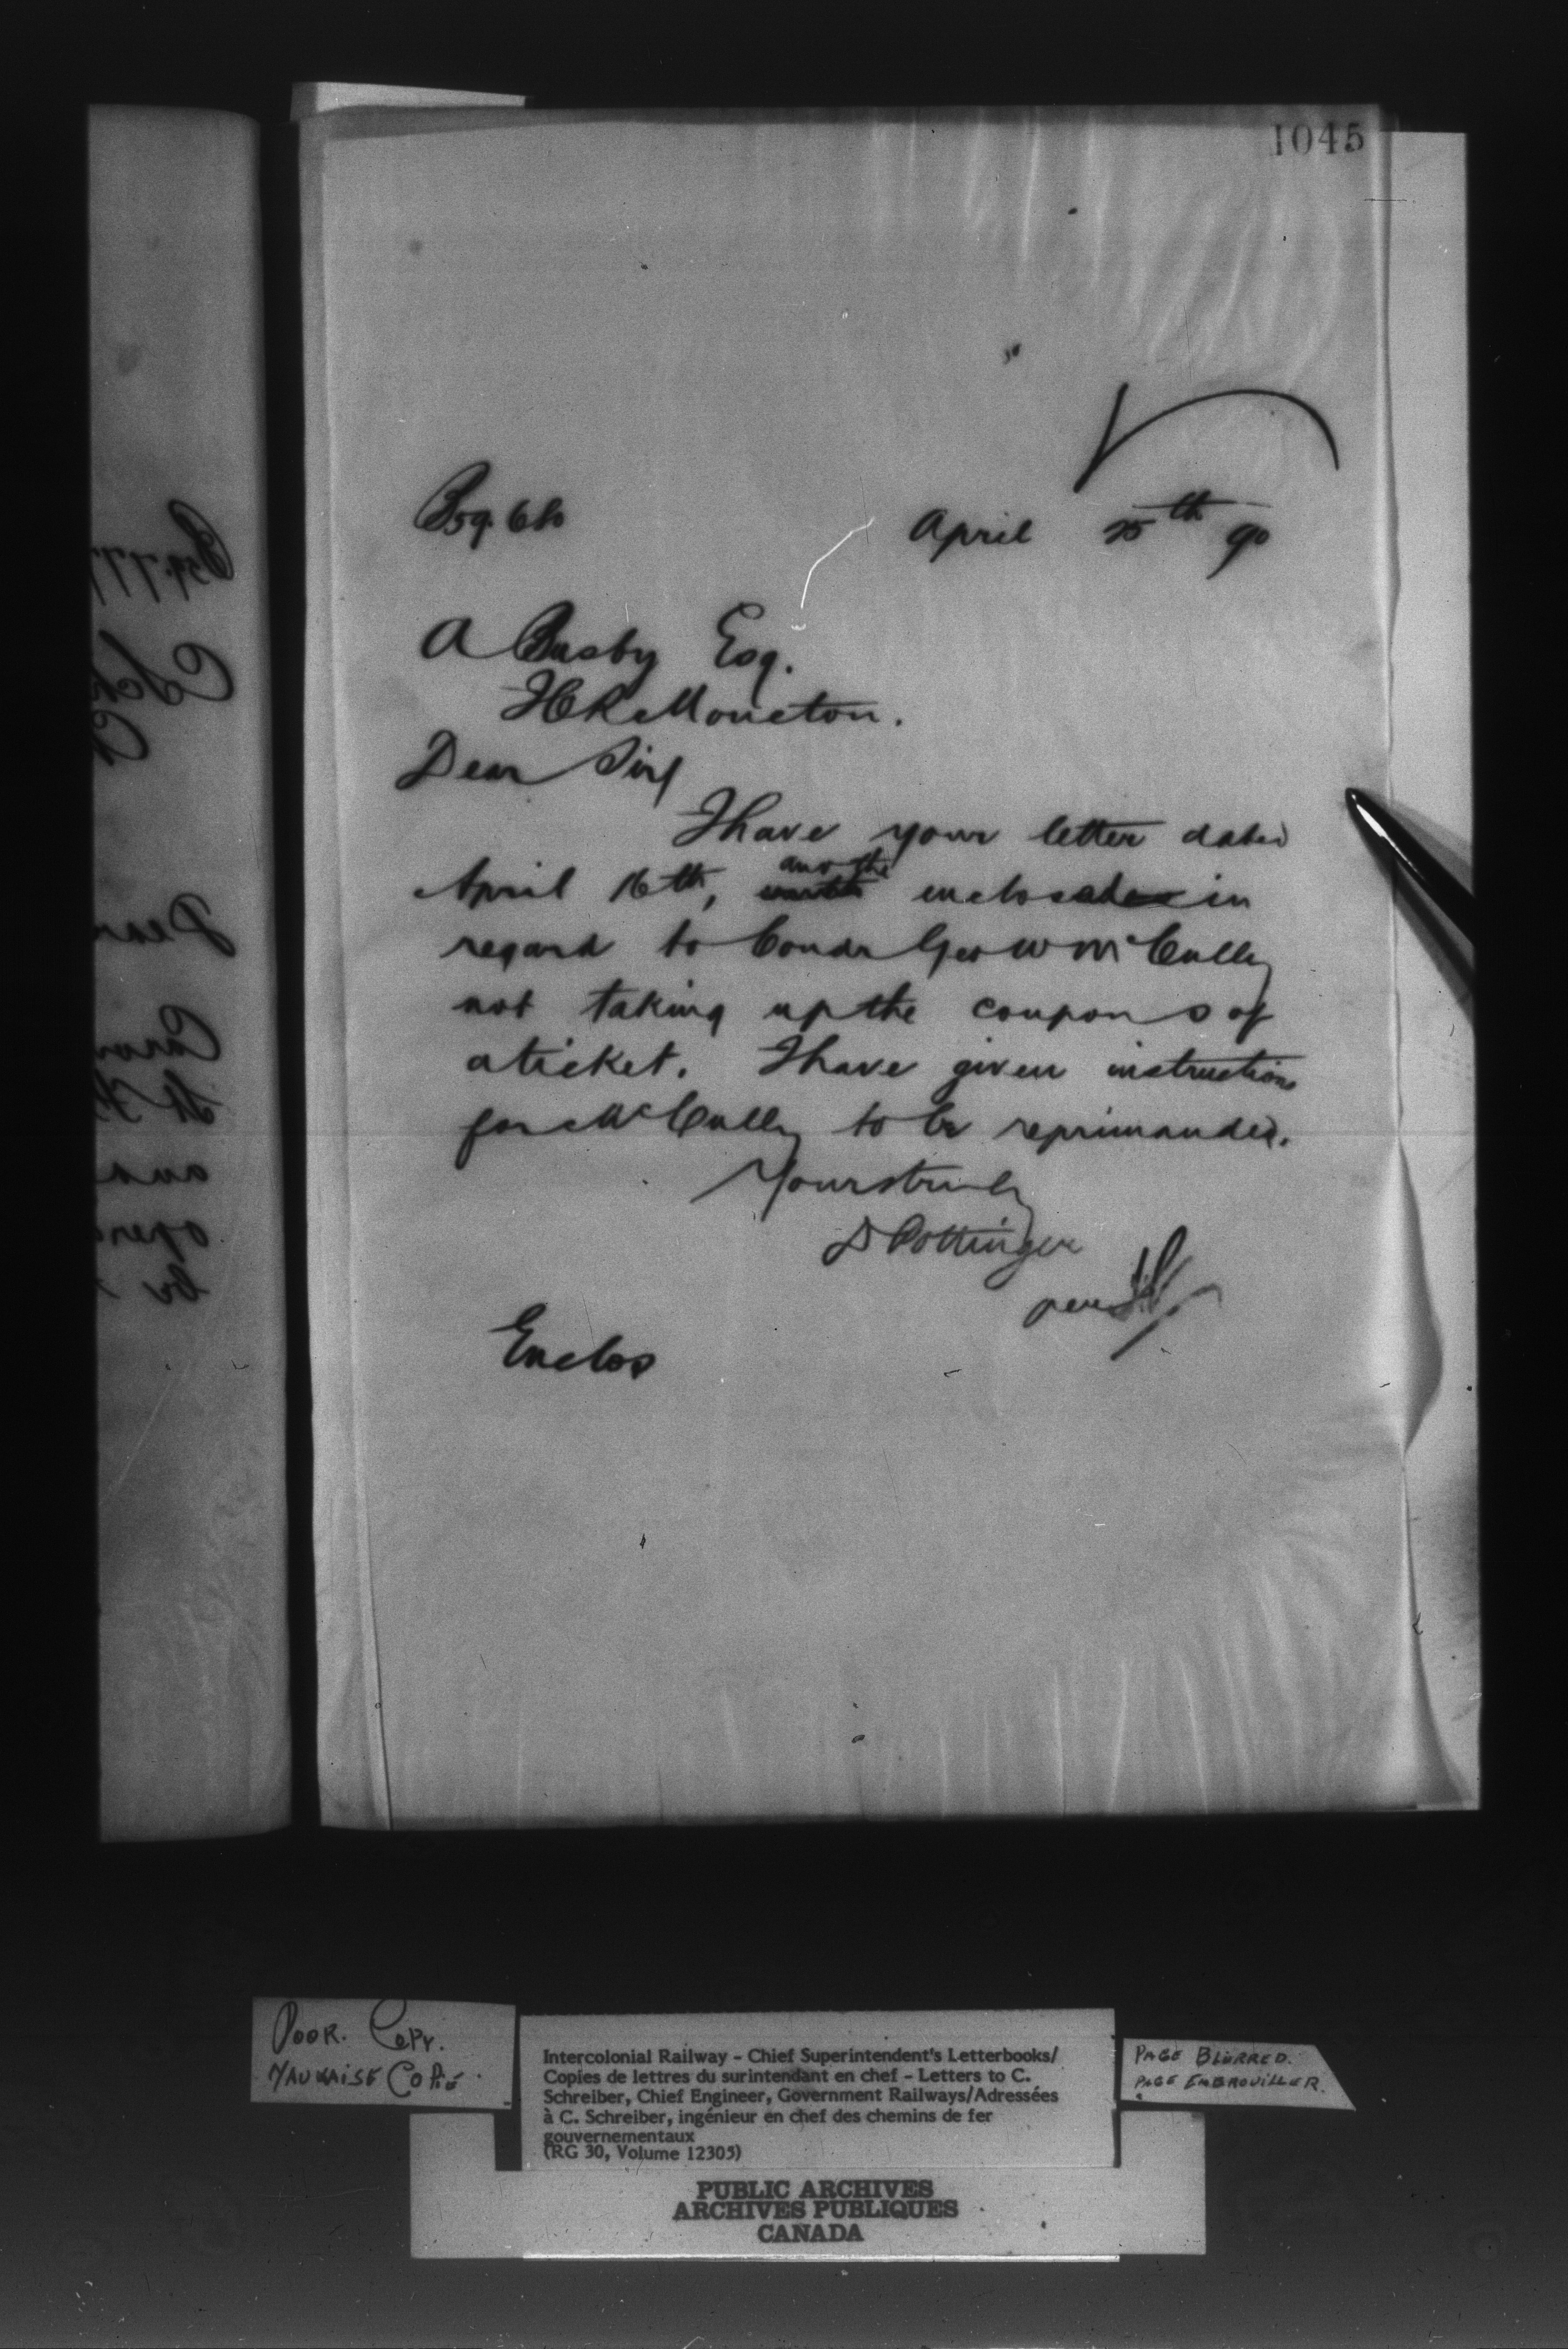 1045
April 25th 90
A Busby Esq.
ICR Moncton.
Dear Sir/
I have your letter dated
and the
April 16th, enclosed in
regard to Condr Geo W McCully
not taking up the coupons of
a ticket. I have given instructions
for McCully to be reprimanded.
Yours truly
D Pottinger
per
Enclos
Poor. Copy.
Mauvaise Copie.
Intercolonial Railway - Chief Superintendent's Letterbooks/
Copies de lettres du surintendant en chef - Letters to C.
Schreiber, Chief Engineer, Government Railways/Adressées
à C. Schreiber, ingénieur en chef des chemins de fer
gouvernementaux
(RG 30, Volume 12305)
Page Blurred.
Page Embrouiller.
PUBLIC ARCHIVES
ARCHIVES PUBLIQUES
CANADA